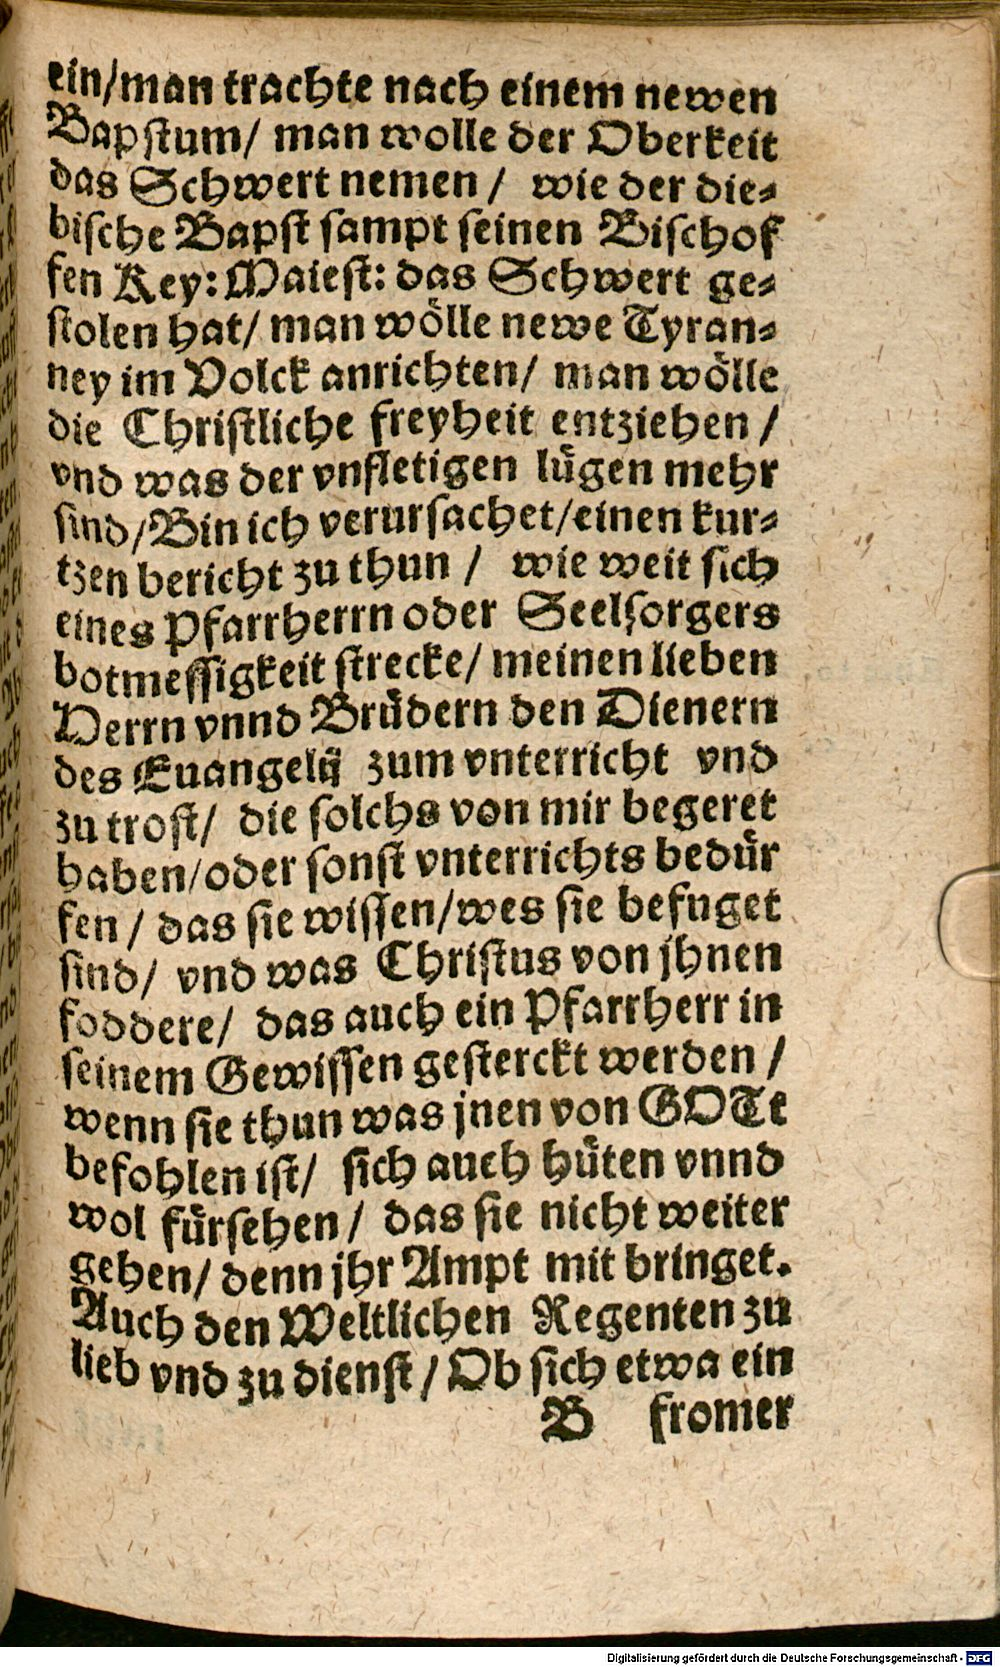 ein/man trachte nach einem newen
Bapstum/ man wolle der Oberkeit
das Schwert nemen / wie der die-
bische Bapst sampt seinen Bischof
fen Key: Maiest: das Schwert ge-
stolen hat/ man wölle newe Tyran-
ney im Volck anrichten/ man wölle
die Christliche freyheit entziehen /
vnd was der vnfletigen lügen mehr
sind/Bin ich verursachet/einen kur-
tzen bericht zu thun / wie weit sich
eines Pfarrherrn oder Seelsorgers
botmessigkeit strecke/ meinen lieben
Herrn vnnd Brüdern den Dienern
des Euangelij zum vnterricht vnd
zu trost/ die solchs von mir begeret
haben/oder sonst vnterrichts bedür
fen / das sie wissen/wes sie befuget
sind/ vnd was Christus von jhnen
foddere/ das auch ein Pfarrherr in
seinem Gewissen gesterckt werden /
wenn sie thun was jnen von GOTt
befohlen ist/ sich auch hüten vnnd
wol fürsehen/ das sie nicht weiter
gehen/ denn jhr Ampt mit bringet.
Auch den Weltlichen Regenten zu
lieb vnd zu dienst / Ob sich etwa ein
B fromer
Digitalisierung gefördert durch die Deutsche Forschungsgemeinschaft - DFG